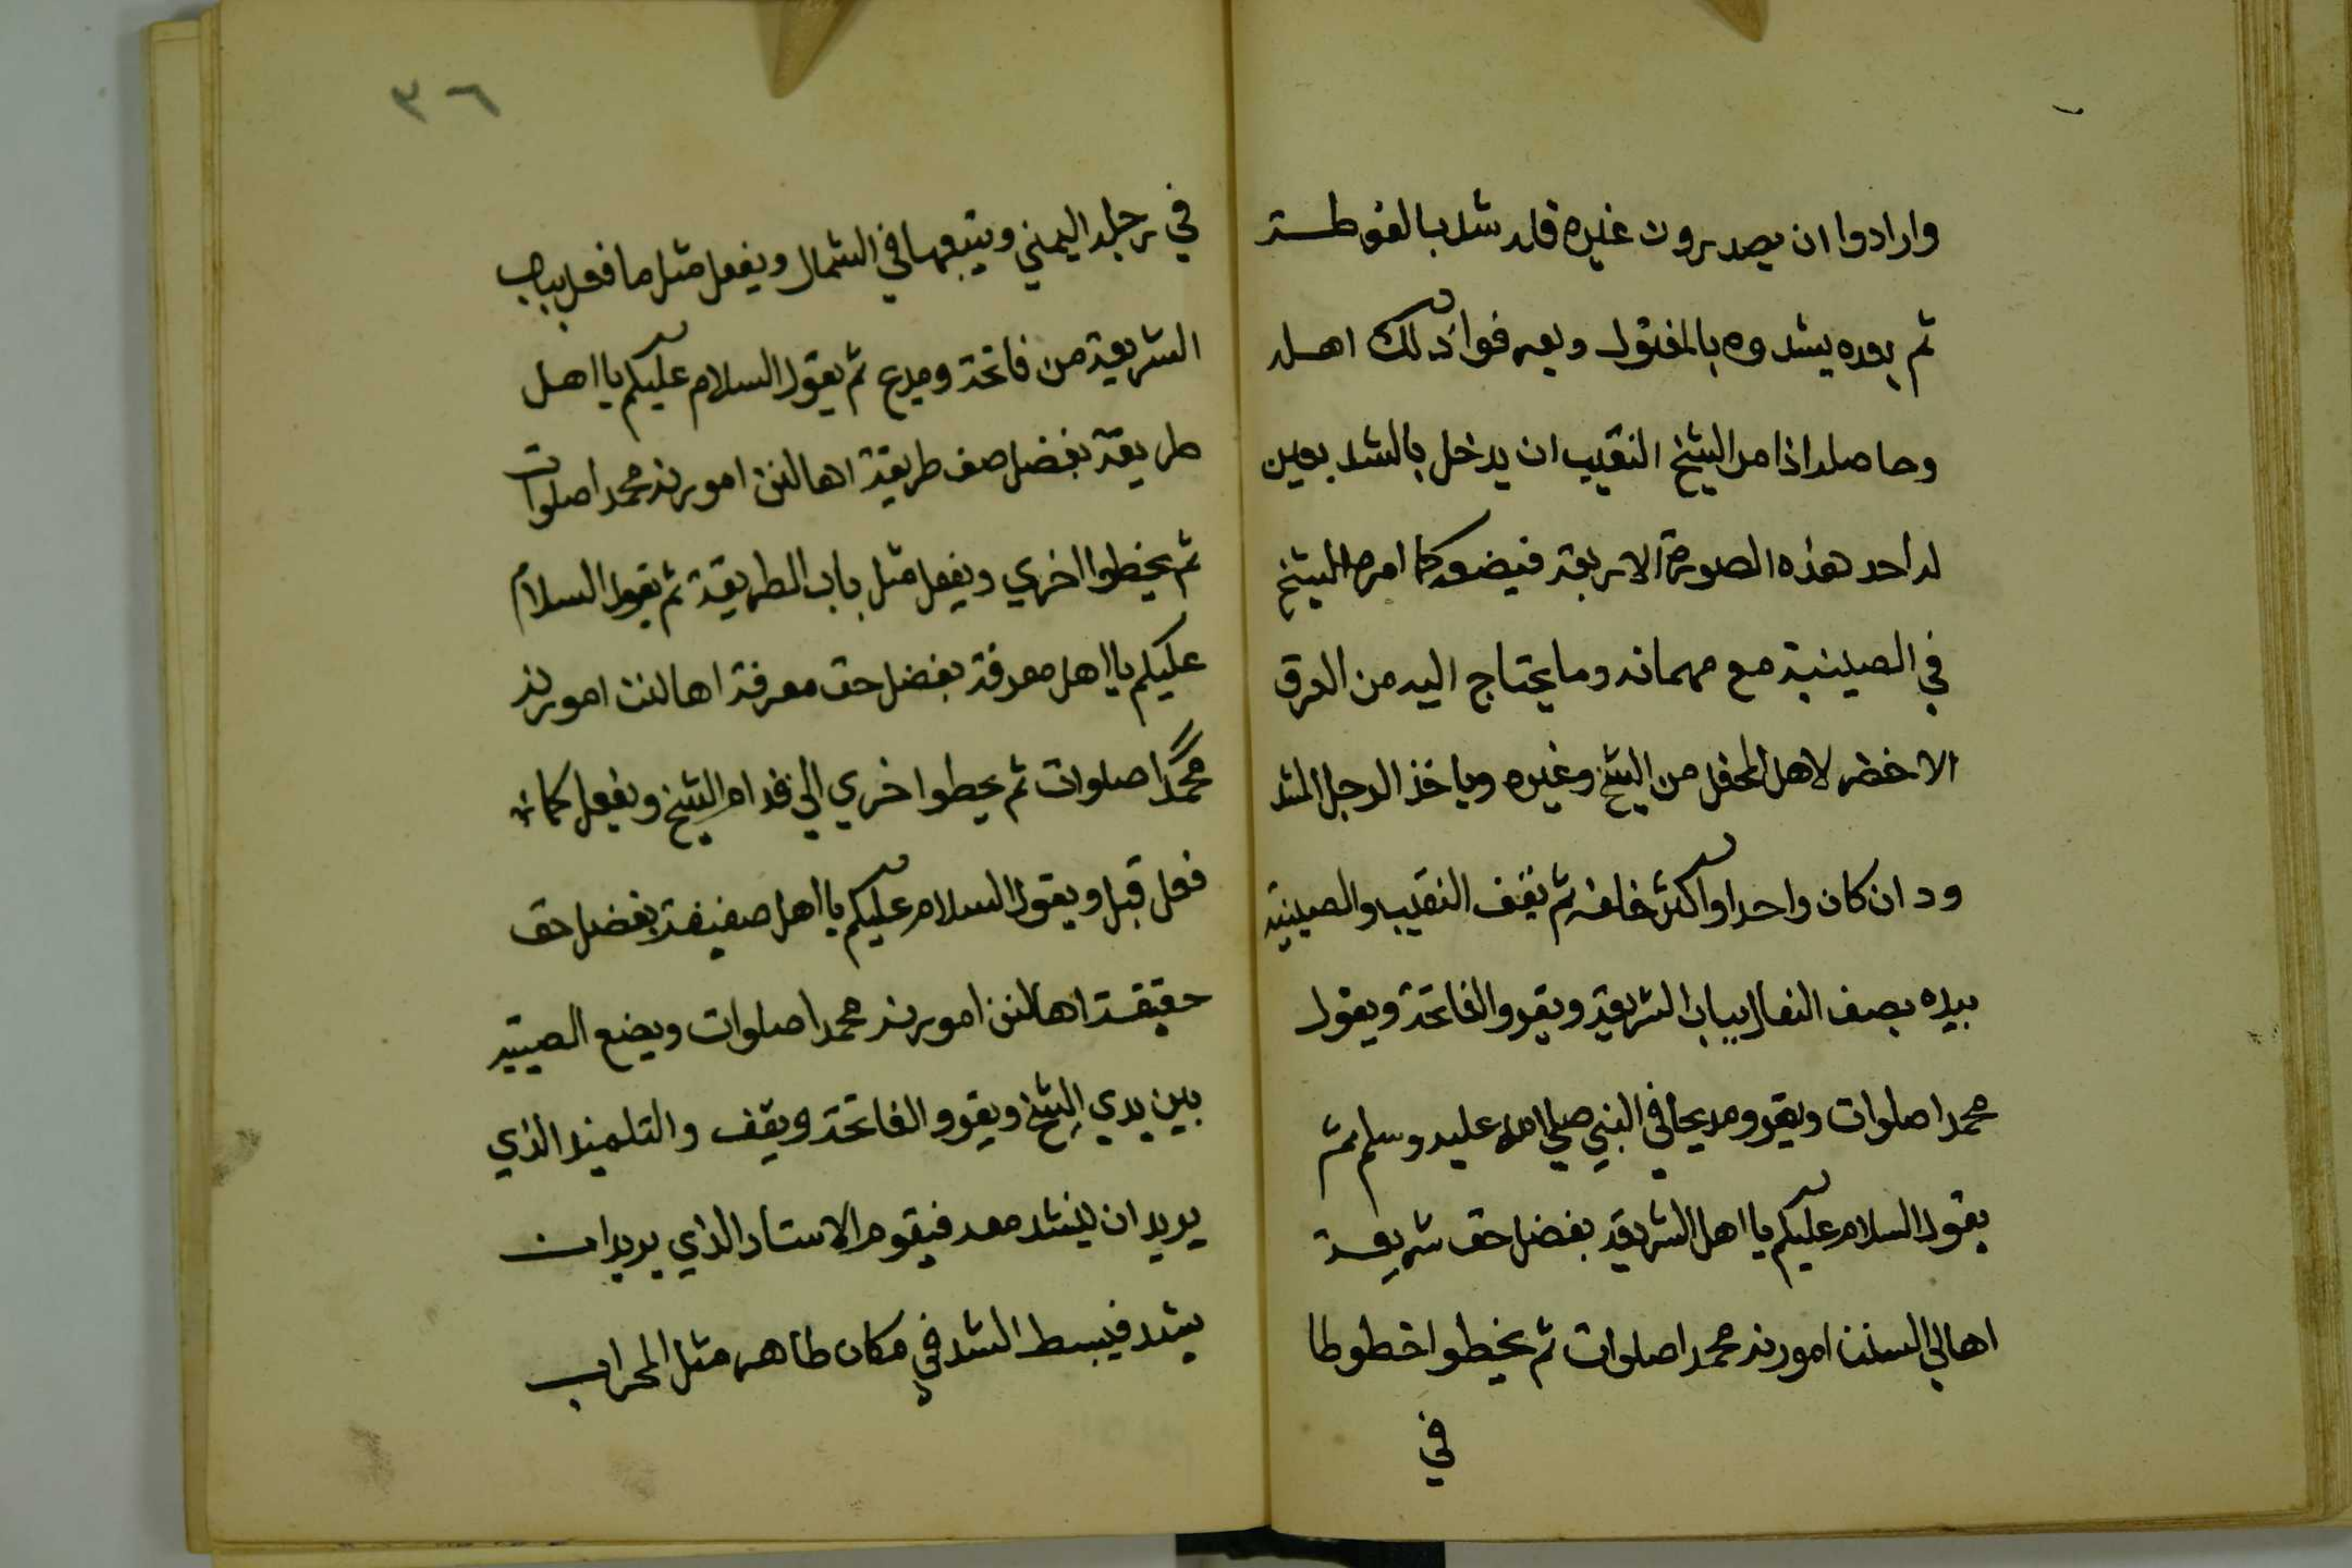 وارادوا ان يصدروت غيره قله شد بالفوطـة
ثم بعده يشدوه بالمفتول ويعرفوا ذلك اهله
وحاصله اذا امر الشيخ النقيب ان يدخل بالشد بعين
له احد هذه الصورة الاربعة فيضعه كما امره الشيخ
في الصينية مع مهماته وما يحتاج اليه من العرق
الاخضر لاهل المحفل من الشيخ وغيره وياخذ الرجل المشد
ود ان كان واحدا او اكثر خلفه ثم يقف النقيب والصينية
بيده بصف النعال بباب الشريعة ويقرو الفاتحة ويقول
محمدا صلوات ويقرو مديحا في النبي صلي الله عليه وسلم ثم
يقول السلام عليكم يا اهل الشريعة بفضل حق شريعة
اهالي السنن امورند محمدا صلوات ثم يخطوا خطوطا
في
٣٦
في رجله اليمني ويتبعها في الشمال ويفعل مثل ما فعل بباب
الشريعة من فاتحة ومدح ثم يقول السلام عليكم يا اهل
طريقة بفضل صف طريقة اهالنن امورند محمدا صلوات
ثم يخطوا اخري ويفعل مثل باب الطريقة ثم يقول السلام
عليكم يا اهل معرفة بفضل حق معرفة اهالنن امورند
محمدًا صلوات ثم يخطوا اخري الي قدام الشيخ ويفعل كما
فعل قبل ويقول السلام عليكم يا اهل حقيقة بفضل حق
حقيقة اهالنن امورند محمدا صلوات ويضع الصينية
بين يدي الشيخ ويقرو الفاتحة ويقف والتلميذ الذي
يريد ان ينشد معه فيقوم الاستاد الذي يريد ان
يشده فيبسط الشد في مكان طاهر مثل المحراب